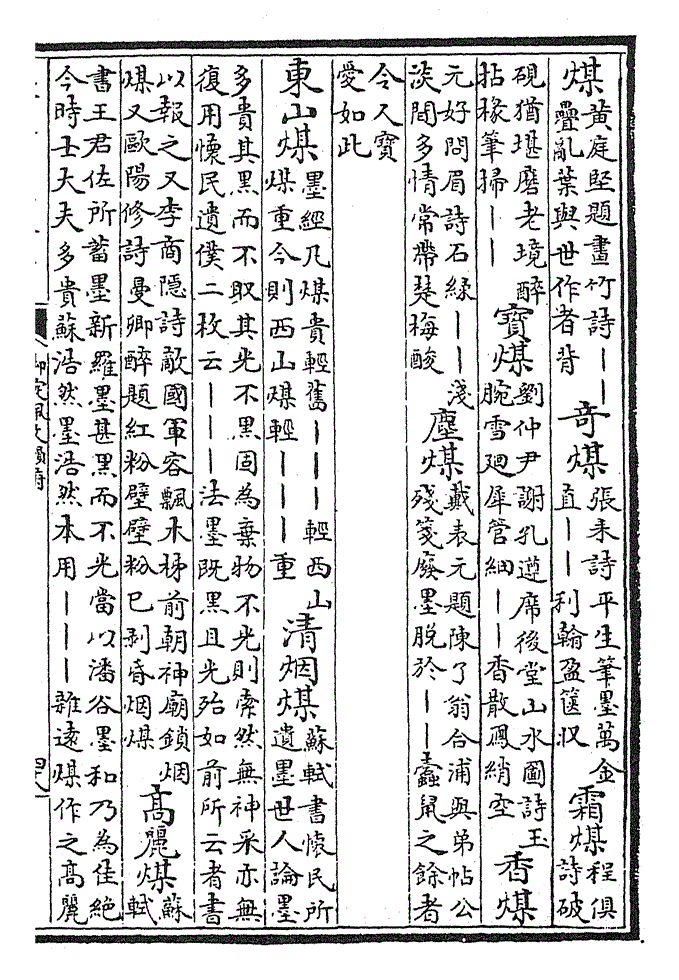 煤黄庭堅題畫竹詩丨丨
疊亂葉與世作者背
奇煤張耒詩平生筆墨萬金
直丨丨利翰盈篋収
霜煤程俱
詩破
硯猶堪磨老境醉
拈椽筆掃丨丨
寳煤劉仲尹謝孔遵席後堂山水圖詩玉
腕雪廻犀管細丨丨香散鳳綃空
香煤
元好問眉詩石緑丨丨淺
淡間多情常帶楚梅酸
塵煤戴表元題陳了翁合浦與弟帖公
殘箋廢墨脱於丨丨蠧鼠之餘者
今人寳
愛如此
東山煤墨經凡煤貴輕舊丨丨丨輕西山
煤重今則西山煤輕丨丨丨重
清烟煤蘇軾書懷民所
遺墨世人論墨
多貴其黑而不取其光不黑固為棄物不光則索然無神采亦無
復用懷民遺僕二枚云丨丨丨法墨既黑且光殆如前所云者書
以報之又李商隱詩敵國軍容飄木柹前朝神廟鎖烟
煤又歐陽修詩曼卿醉題紅粉壁壁粉已剥昏烟煤
高麗煤蘇
軾
書王君佐所蓄墨新羅墨甚黑而不光當以潘谷墨和乃為佳絶
今時士大夫多貴蘇浩然墨浩然本用丨丨丨雜遠煤作之高麗
御定佩文韻府